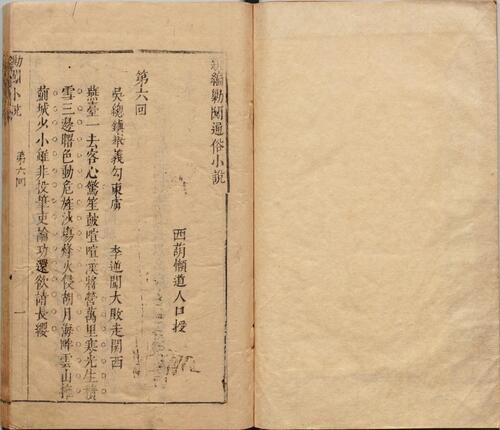 新編勦闖通俗小說
西葫懶道人口授
第六回
吳總鎮義勾東虜 李逆闖大敗走關西
燕臺一去客心驚笙鼓喧喧漢將營萬里寒光生積
雪三邊曙色動危旌沙塲烽火侵胡月海畔雲山擁
薊城少小雖非投筆吏論功還欲請長纓
勦闖小說
第六回
一